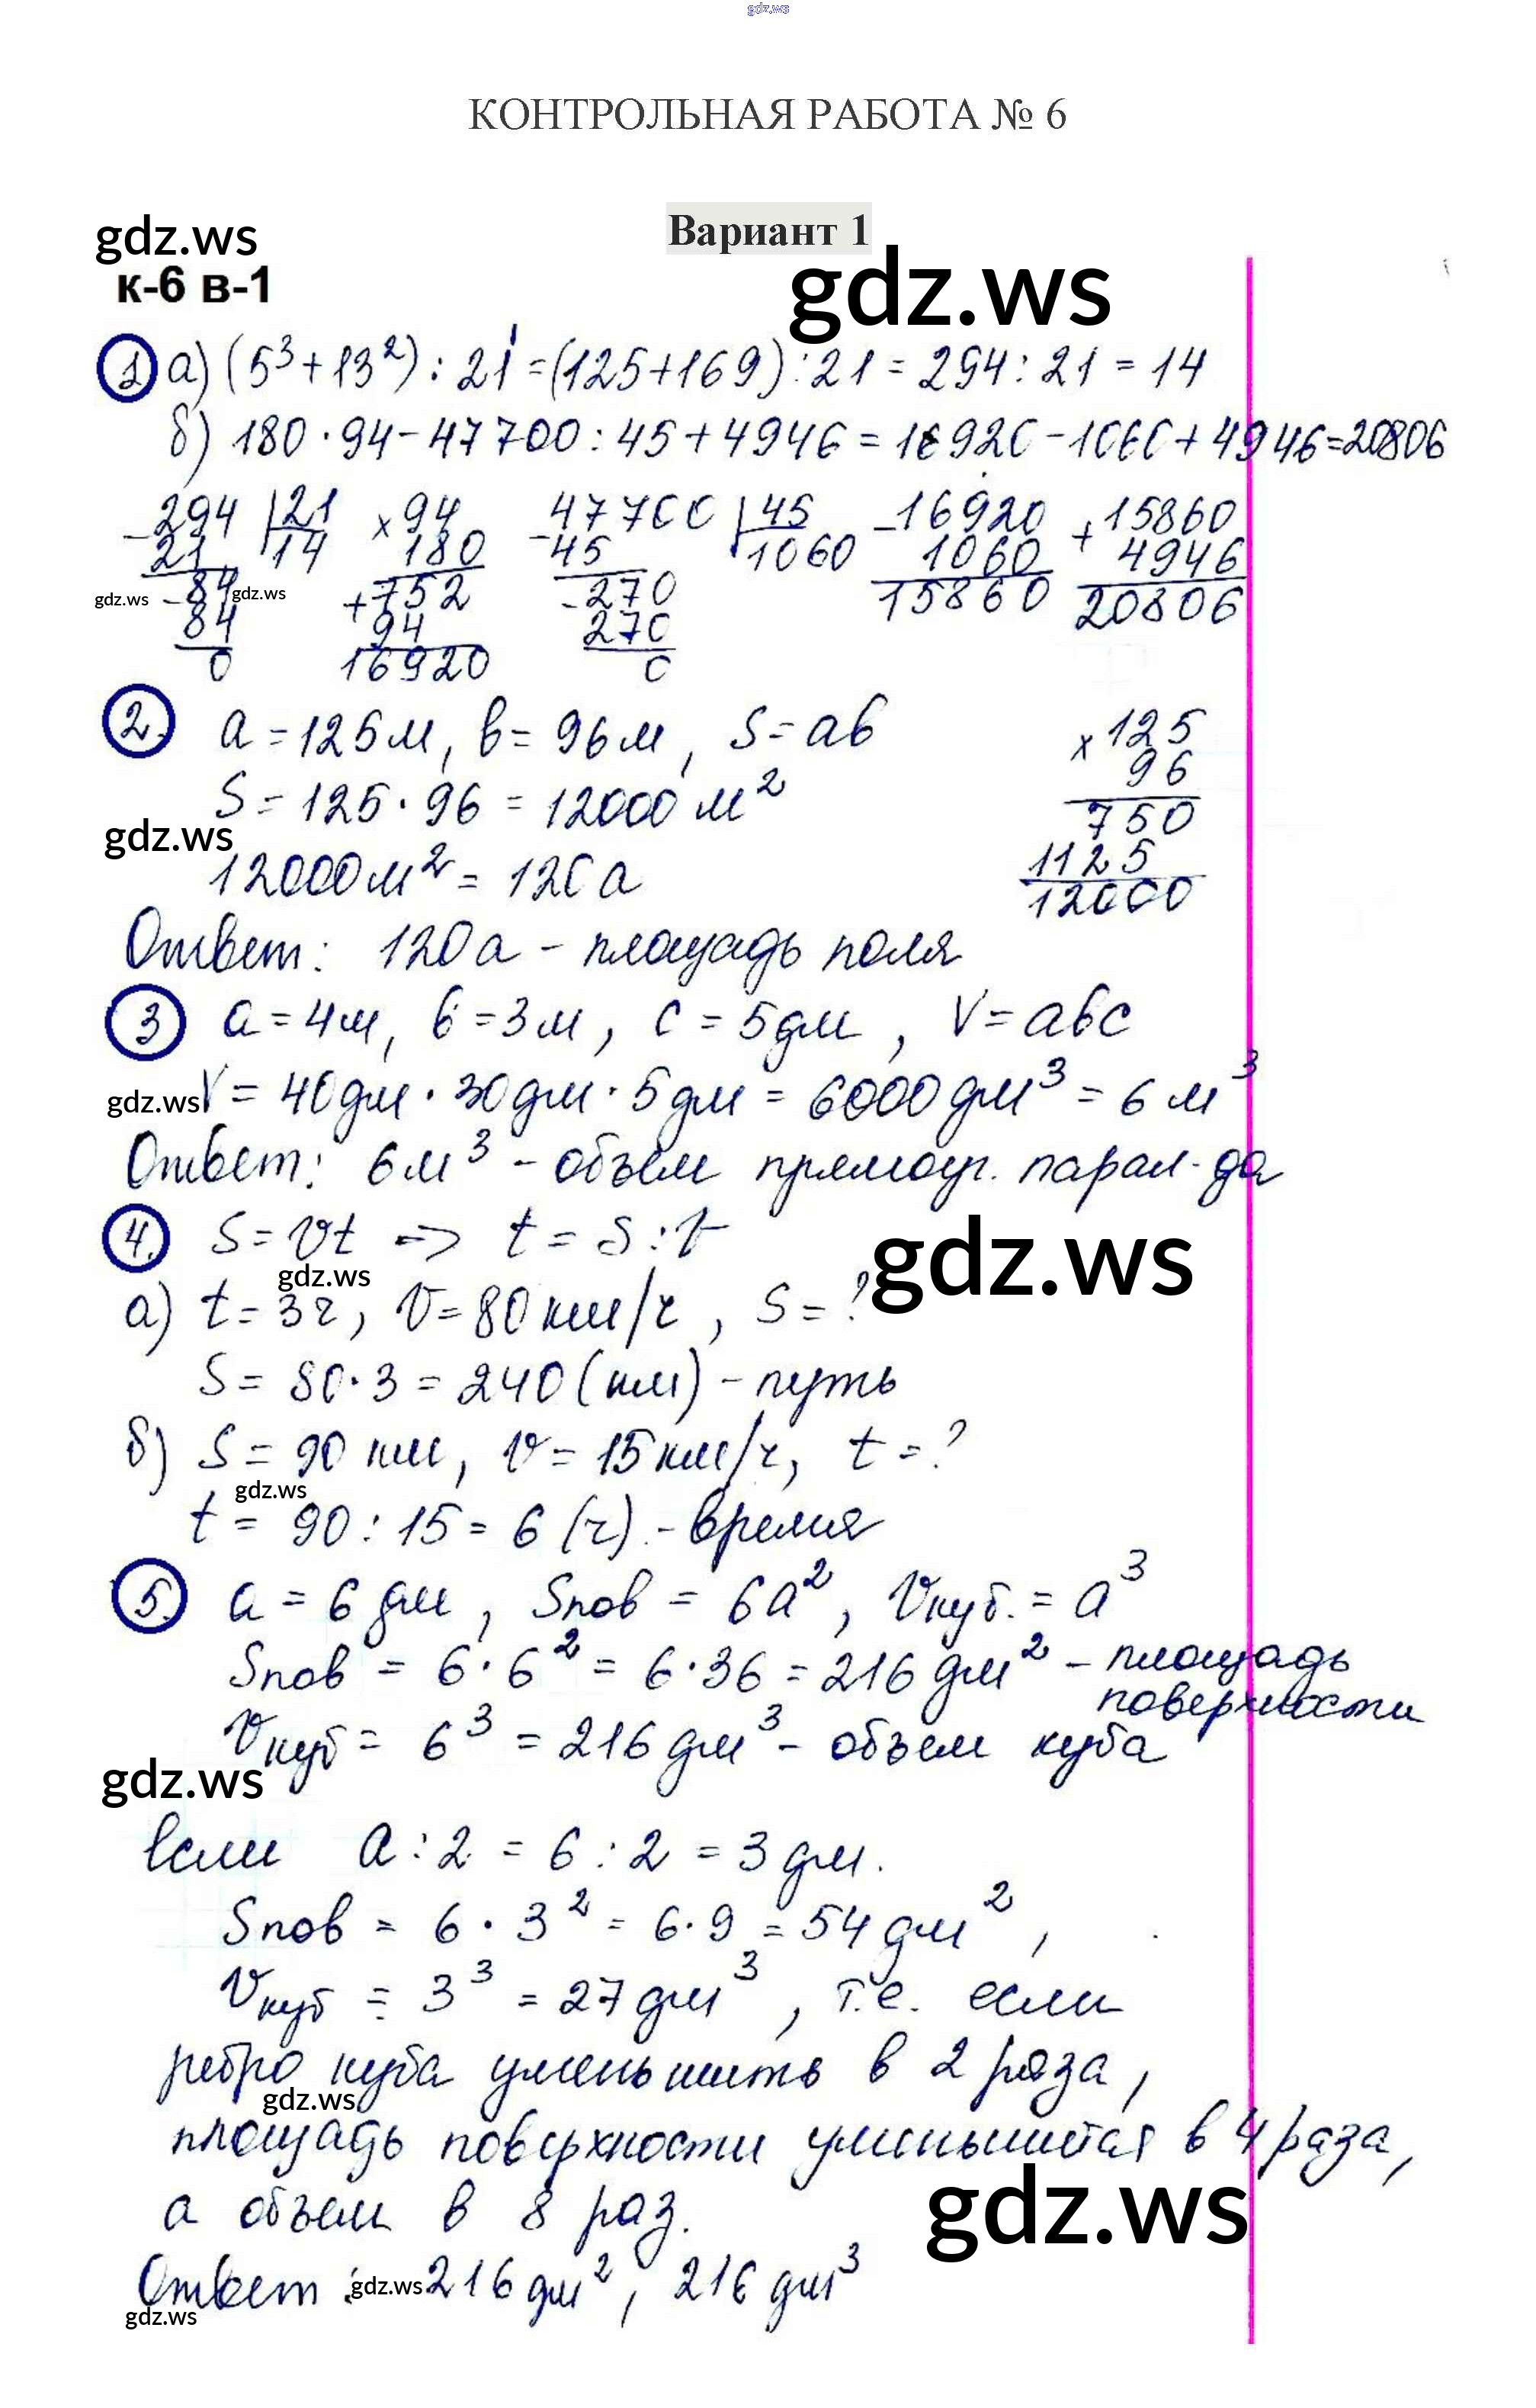 gdz.ws
КОНТРОЛЬНАЯ РАБОТА № 6
Вариант 1
gdz.ws
gdz.ws
к-6 в-1
1 а) (5³+13²) : 21 = (125+169) : 21 = 294 : 21 = 14
б) 180 · 94 - 47700 : 45 + 4946 = 16920 - 1060 + 4946 = 20806
- 294 | 21 × 94 - 47700 | 45 - 16920 + 15860
21 14 180 45 1060 1060 4946
- 84 + 752 - 270 15860 20806
gdz.ws gdz.ws
84 94 270
0 16920 0
2. а = 125 м, в = 96 м, S = ав × 125
S = 125 · 96 = 12000 м² 96
gdz.ws 750
12000 м² = 120 а 1125
12000
Ответ: 120 а - площадь поля
3 а = 4 м, в = 3 м, с = 5 дм, V = авс
gdz.ws V = 40 дм · 30 дм · 5 дм = 6000 дм³ = 6 м³
Ответ: 6 м³ - объём прямоуг. парал-да
4. S = vt => t = S : v
gdz.ws gdz.ws
а) t = 3 ч, v = 80 км/ч, S = ?
S = 80 · 3 = 240 (км) - путь
б) S = 90 км, v = 15 км/ч, t = ?
gdz.ws
t = 90 : 15 = 6 (ч) - время
5. а = 6 дм, Sпов = 6а², Vкуб. = а³
Sпов = 6 · 6² = 6 · 36 = 216 дм² - площадь
поверхности
Vкуб = 6³ = 216 дм³ - объем куба
gdz.ws
если а : 2 = 6 : 2 = 3 дм.
Sпов = 6 · 3² = 6 · 9 = 54 дм²,
Vкуб = 3³ = 27 дм³, т.е. если
ребро куба уменьшить в 2 раза,
gdz.ws
площадь поверхности уменьшится в 4 раза,
а объем в 8 раз.
gdz.ws
Ответ: gdz.ws 216 дм², 216 дм³
gdz.ws